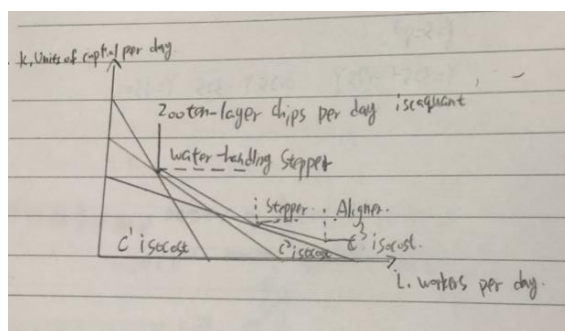 K, Units of capital per day
200 ten-layer chips per day isoaquant
water-handling Stepper
Stepper
Aligner
C¹ isocost
C² isocost
C³ isocost.
L. workers per day.